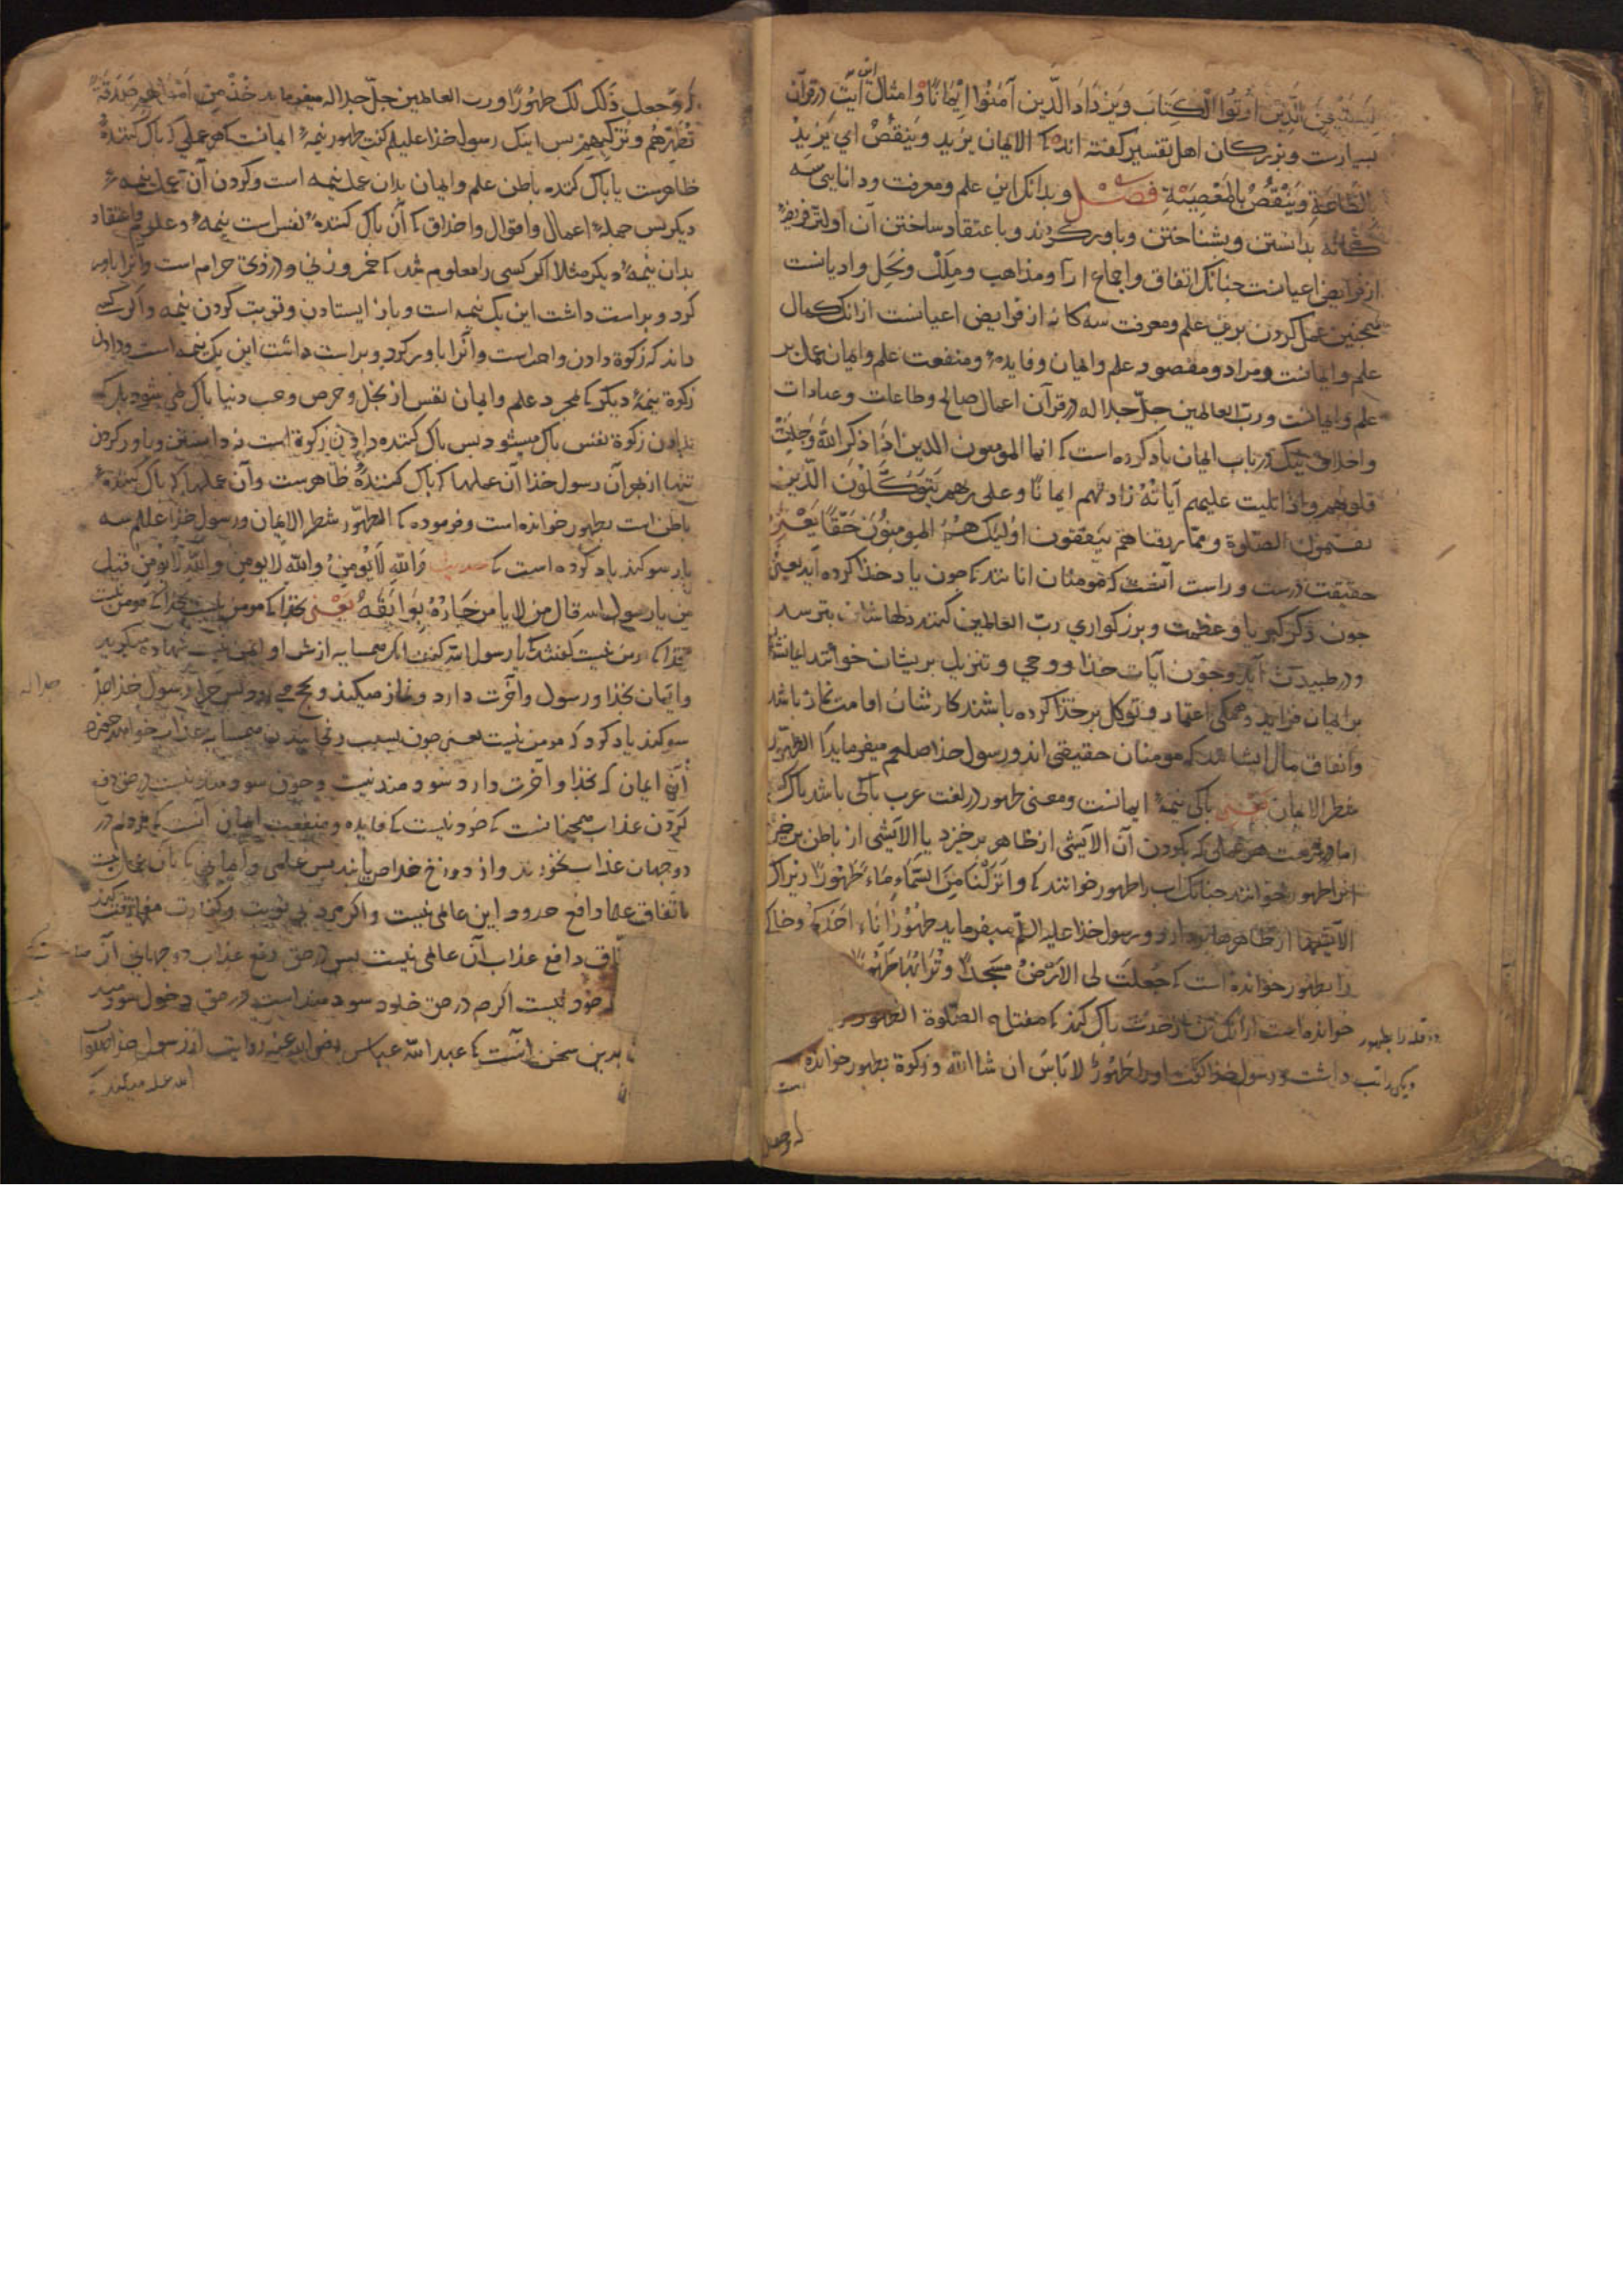 لِيَسْتَيْقِنَ الَّذِينَ أُوتُوا الْكِتَابَ وَيَزْدَادَ الَّذِينَ آمَنُوا إِيْمَانًا وامثال این آیت در قرآن
بسیارست و بزرکان اهل تفسیر کفته اند که الایمان یزید وینقص ای یَزِیدُ
بالطَّاعَةِ وَيَنْقُصُ بِالمَعْصِيَةِ فصل و بدانک این علم و معرفت و دانایی سه
کانه بدانستن و بشناختن و باور کردند و با اعتقاد ساختن آن اولتر فریضه
از فرایض اعیانست چنانک اتفاق و اجماع ارآ و مذاهب و مِلَلْ و نَحَل و ادیانست
همچنین عمل کردن برین علم و معرفت سه کانه از فرایض اعیانست ازانک کمال
علم و ایمانست و مراد و مقصود علم و ایمان و فایده و منفعت علم و ایمان عمل بر
علم و ایمانست و ربّ العالمین جلّ جلاله در قرآن اعمال صالح و طاعات و عبادات
و اخلاق نیک در باب ایمان یاد کرده است که انما المومنون الذین اذا ذکر اللّه وَجِلَتْ
قلوبهم و اذا تلیت علیهم آیاتُهُ زادتهم ایمانًا و علی ربهم یَتَوَکَّلُوْنَ الّذین
یقیمون الصّلوة و ممّا رزقناهم ینفقون اولیک هُمُ المومِنُوْنَ حَقًّا یَعْنِی
حقیقت درست و راست آنست که مومنان انانند که چون یاد خذا کرده آید یعنی
چون ذکر کبریا و عظمت و بزرکواری ربّ العالمین کنند دلها شان بترسد
و در طبیدن آید و چون آیات خذا و وحی و تنزیل بریشان خوانند ایمانشان
بر ایمان فزاید و همکی اعتماد و توکل بر خذا کرده باشند کارشان اقامت نماز باشد
و انفاق مال ایشانند که مومنان حقیقی اند و رسول خذا صلعم میفرماید که الطّهور
شطر الایمان یَعْنِی پاکی نیمهٔ ایمانست و معنی طهور در لغت عرب پاکی باشد
اما در شریعت هر عملی که بکردن آن الایشی از ظاهر برخیزد یا الایشی از باطن برخیزد
انرا طهور خوانند چنانک اب را طهور خوانند که وَاَنْزَلْنَا مِنَ السَّمَآءِ مَاءً طَهُوْرًا زیراک
الایشها از ظاهر و رسول خذا علیه السّلم میفرماید طُهُوْرُ اِنَاءِ اَحَدِکُم و خاک
را بطهور خوانده است که جُعِلَتْ لِیَ الاَرْضُ مَسْجِدًا وَتُرَابُهَا طَهُوْرًا
خوانده است ازانک تن از حدث پاک کند که مفتاح الصّلوة الطهور
داشت و رسول خذا کفت او را طَهُوْرٌ لَا بَاسَ ان شا اللّه و زکوة بطهور خوانده
است
که وجعل
که وجعل ذَلِکَ لَکَ طَهُوْرًا و ربّ العالمین جلّ جلاله میفرماید خُذْ مِنْ اَمْوَالِهِمْ صَدَقَةً
تُطَهِّرُهُمْ وَتُزَکِّیْهِمْ بس اینک رسول خذا علیلم کفت طهور نیمهٔ ایمانست که هر عملی که پاک کنندهٔ
ظاهرست یا پاک کننده باطن علم و ایمان بدان عمل نیمه است و کردن آن عمل نیمهٔ
دیکر بس جملهٔ اعمال و اقوال و اخلاق که آن پاک کنندهٔ نفس است نیمهٔ و علم و اعتقاد
بدان نیمهٔ دیکر مثلا اکر کسی را معلوم شد که خمر و زنی و دزدی حرام است و آنرا باور
کرد و براست داشت این یک نیمه است و باز ایستادن و توبت کردن نیمه و اکر کسی
داند که زکوة دادن واجبست و آنرا باور کرد و براست داشت این یک نیمه است و دادن
زکوة نیمهٔ دیکر که مجرد علم و ایمان نفس از بخل و حرص و حب دنیا پاک نمی شود بلک
بدادن زکوة نفس پاک میشود بس پاک کننده دادن زکوة است نه دانستن و باور کردن
تنها از بهر آن رسول خذا آن عملها که پاک کنندهٔ ظاهرست و آن عملها که پاک کنندهٔ
باطن است بطهور خوانده است و فرموده که الطهّور شطر الایمان و رسول خذا علیلم سه
بار سوکند یاد کرده است که حدیث وَاللّهِ لَایُوْمِنُ وَاللّه لایومِن وَاللّهِ لَایُوْمِنُ قیل
من یا رسول الله قال من لا یا من جَارُهُ بَوَایِقَهُ یَعْنِی بخذا که مومن نیست بخذا که مومن نیست
بخذا که مومن نیست کفتند که یا رسول اللّه کفت انک همسایه از
و ایمان بخذا و رسول و آخرت دارد و نماز میکند و حج رسول خذا
سوکند یاد کرد که مومن نیست یعنی چون بسبب رنجانیدن همسایه عذاب خواهد
آن ایمان که بخذا و آخرت دارد سودمند نیست و چون سودمند نیست در حق دفع
کردن عذاب همچنانست که خود نیست که فایده و منفعت ایمان آنست که مردم در
دو جهان عذاب نخورند و از دوزخ خلاص یابند بس علمی و ایمانی که بآن عمل نیست
باتفاق علما دافع حدود این عالمی نیست و اکر مرد بی توبت و کفارت
دافع عذاب آن عالمی نیست بس در حق دفع عذاب دو جهانی آن
خود نیست اکرچه در حق خلود سودمند است در حق دخول سودمند
بدین سخن آنست که عبد اللّه عباس رضی الله عنه روایت از رسول خذا